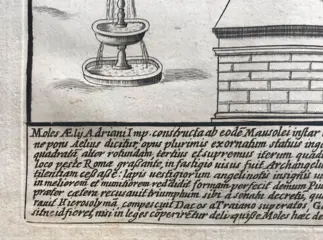 Moles Ælij Adriani Imp. constructa ab eodē Mausolei instar
ne pons Aelius dicitur, opus plurimis exornatum statuis
quadratū, alter rotundam, tertius et supremus iterum
loco peste Romæ grassante, in fastigio visus fuit Archang
tilentiam cessasse: lapis vestigiorum angelinotis insignis
in meliorem et munitiorem reddidit formam perfecit demum
præter cætera recusauit triumphum sibi a senatu decretū,
rauit Hierosolymā, compescuit Dacos a Traiano superatos,
in leges